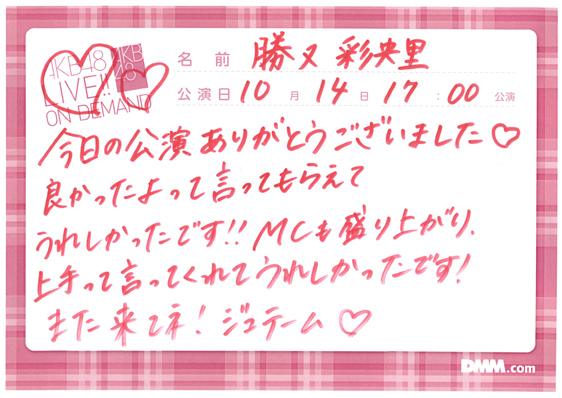 AKB48
LIVE!!
ON DEMAND
AKB
48
名前 勝又 彩央里
公演日 10 月 14 日 17 : 00 公演
今日の公演ありがとうございました♡
良かったよって言ってもらえて
うれしかったです!! MCも盛り上がり、
上手って言ってくれてうれしかったです!
また来てネ! ジュテーム♡
DMM.com